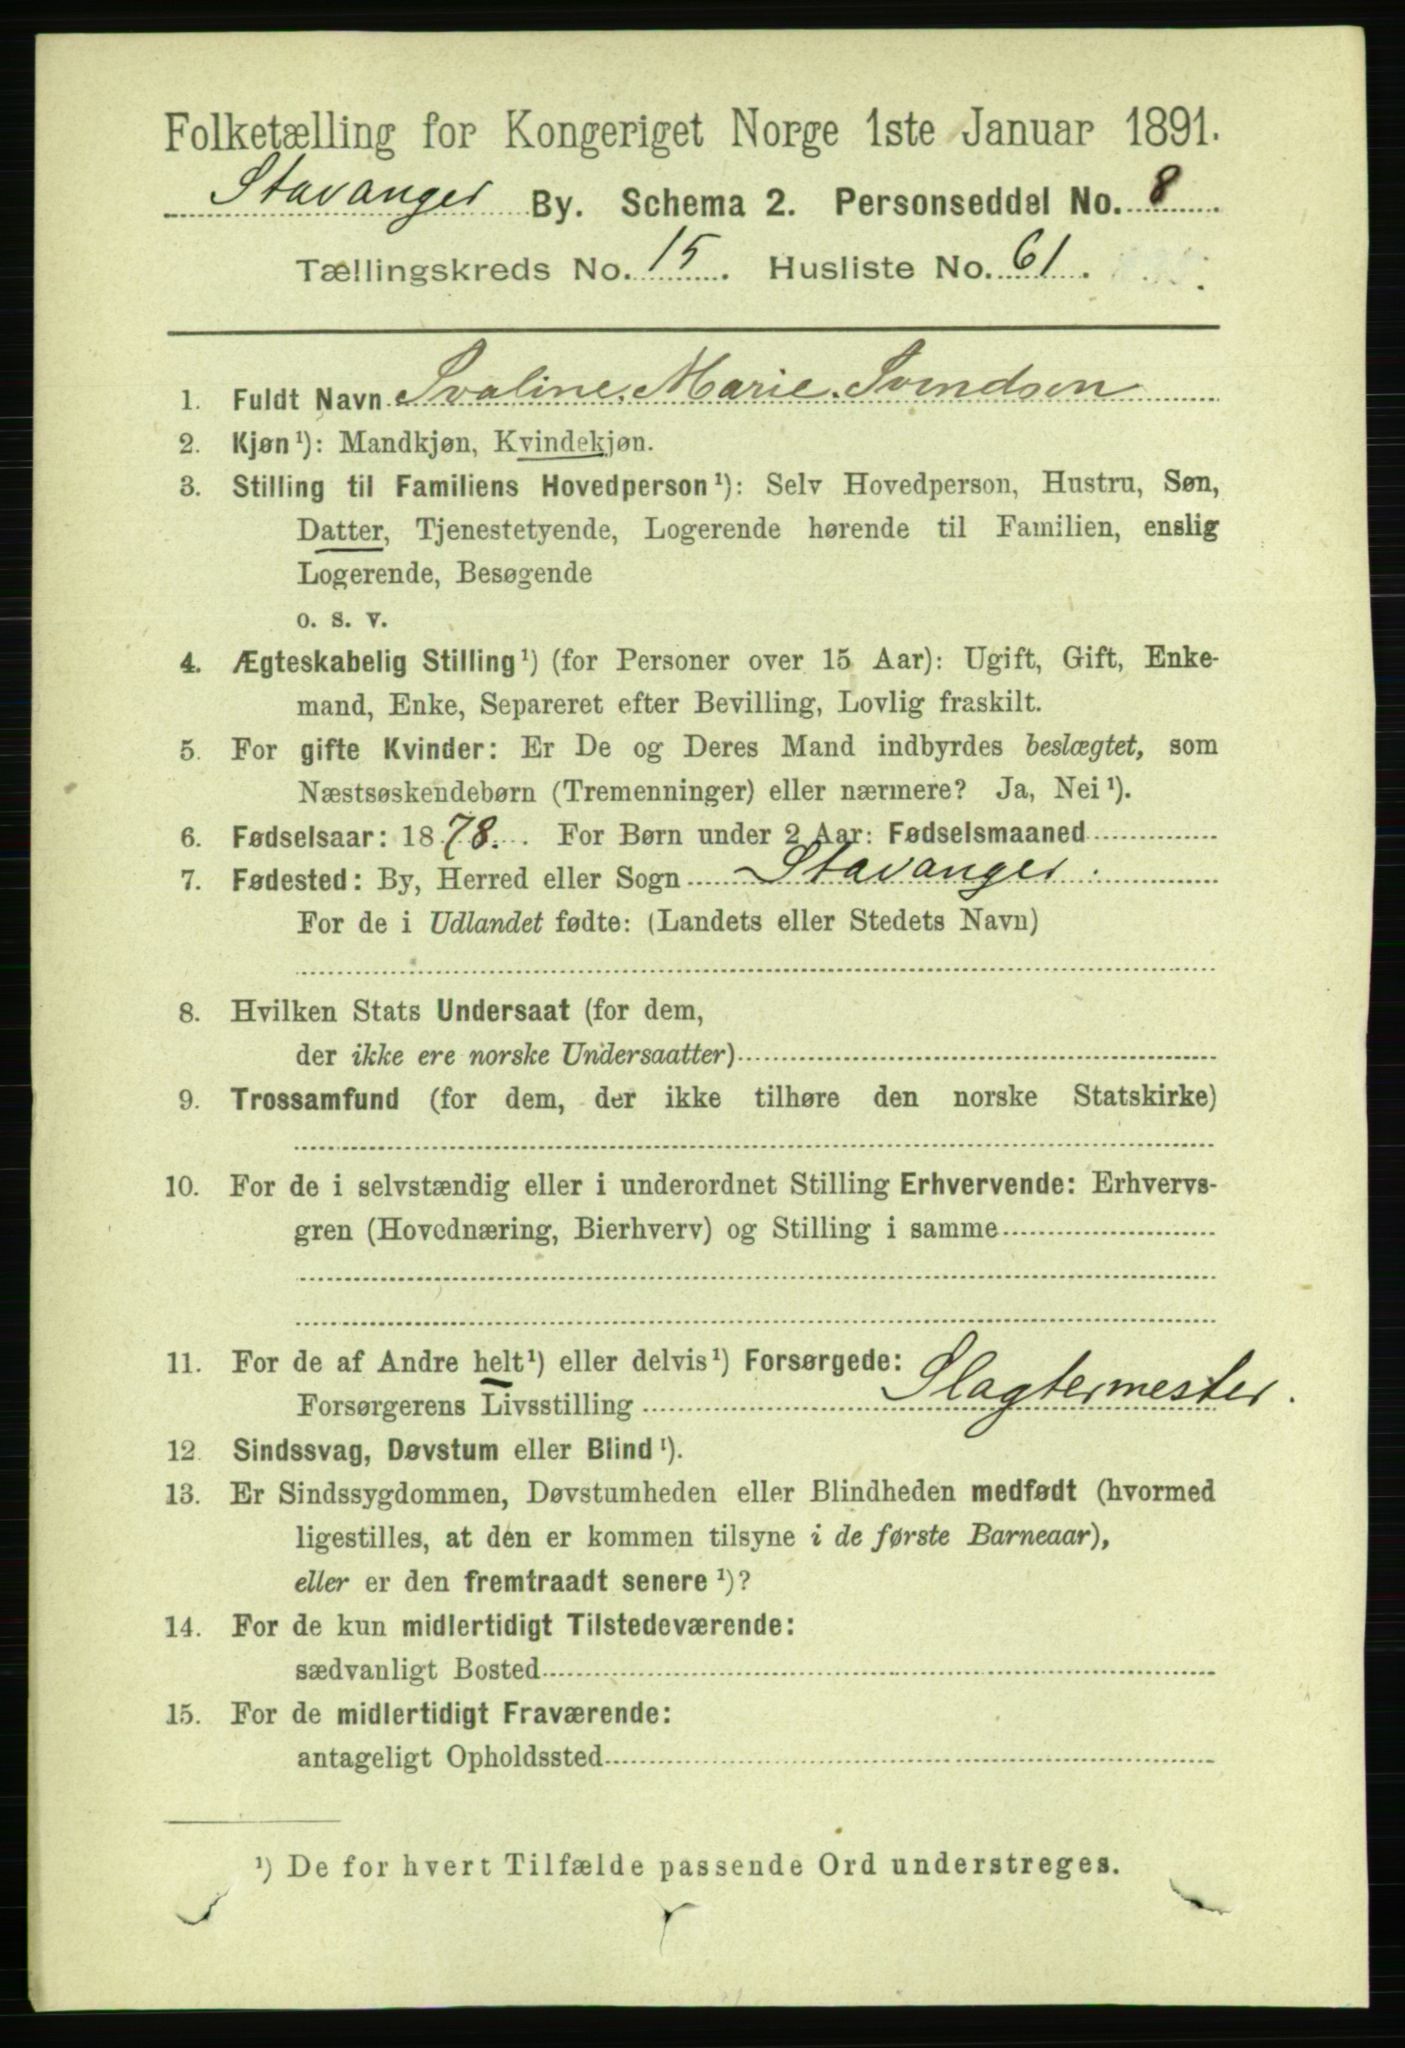 Folketælling for Kongeriget Norge 1ste Januar 1891.
Stavanger By. Schema 2. Personseddel No. 8
Tællingskreds No. 15. Husliste No. 61.
1. Fuldt Navn Svaline Marie Svendsen
2. Kjøn¹): Mandkjøn, Kvindekjøn.
3. Stilling til Familiens Hovedperson¹): Selv Hovedperson, Hustru, Søn,
Datter, Tjenestetyende, Logerende hørende til Familien, enslig
Logerende, Besøgende
o. s. v.
4. Ægteskabelig Stilling¹) (for Personer over 15 Aar): Ugift, Gift, Enke-
mand, Enke, Separeret efter Bevilling, Lovlig fraskilt.
5. For gifte Kvinder: Er De og Deres Mand indbyrdes beslægtet, som
Næstsøskendebørn (Tremenninger) eller nærmere? Ja, Nei¹).
6. Fødselsaar: 1878. For Børn under 2 Aar: Fødselsmaaned
7. Fødested: By, Herred eller Sogn Stavanger.
For de i Udlandet fødte: (Landets eller Stedets Navn)
8. Hvilken Stats Undersaat (for dem,
der ikke ere norske Undersaatter)
9. Trossamfund (for dem, der ikke tilhøre den norske Statskirke)
10. For de i selvstændig eller i underordnet Stilling Erhvervende: Erhvervs-
gren (Hovednæring, Bierhverv) og Stilling i samme
11. For de af Andre helt¹) eller delvis¹) Forsørgede:
Forsørgerens Livsstilling Slagtermester.
12. Sindssvag, Døvstum eller Blind¹).
13. Er Sindssygdommen, Døvstumheden eller Blindheden medfødt (hvormed
ligestilles, at den er kommen tilsyne i de første Barneaar),
eller er den fremtraadt senere¹)?
14. For de kun midlertidigt Tilstedeværende:
sædvanligt Bosted
15. For de midlertidigt Fraværende:
antageligt Opholdssted
¹) De for hvert Tilfælde passende Ord understreges.